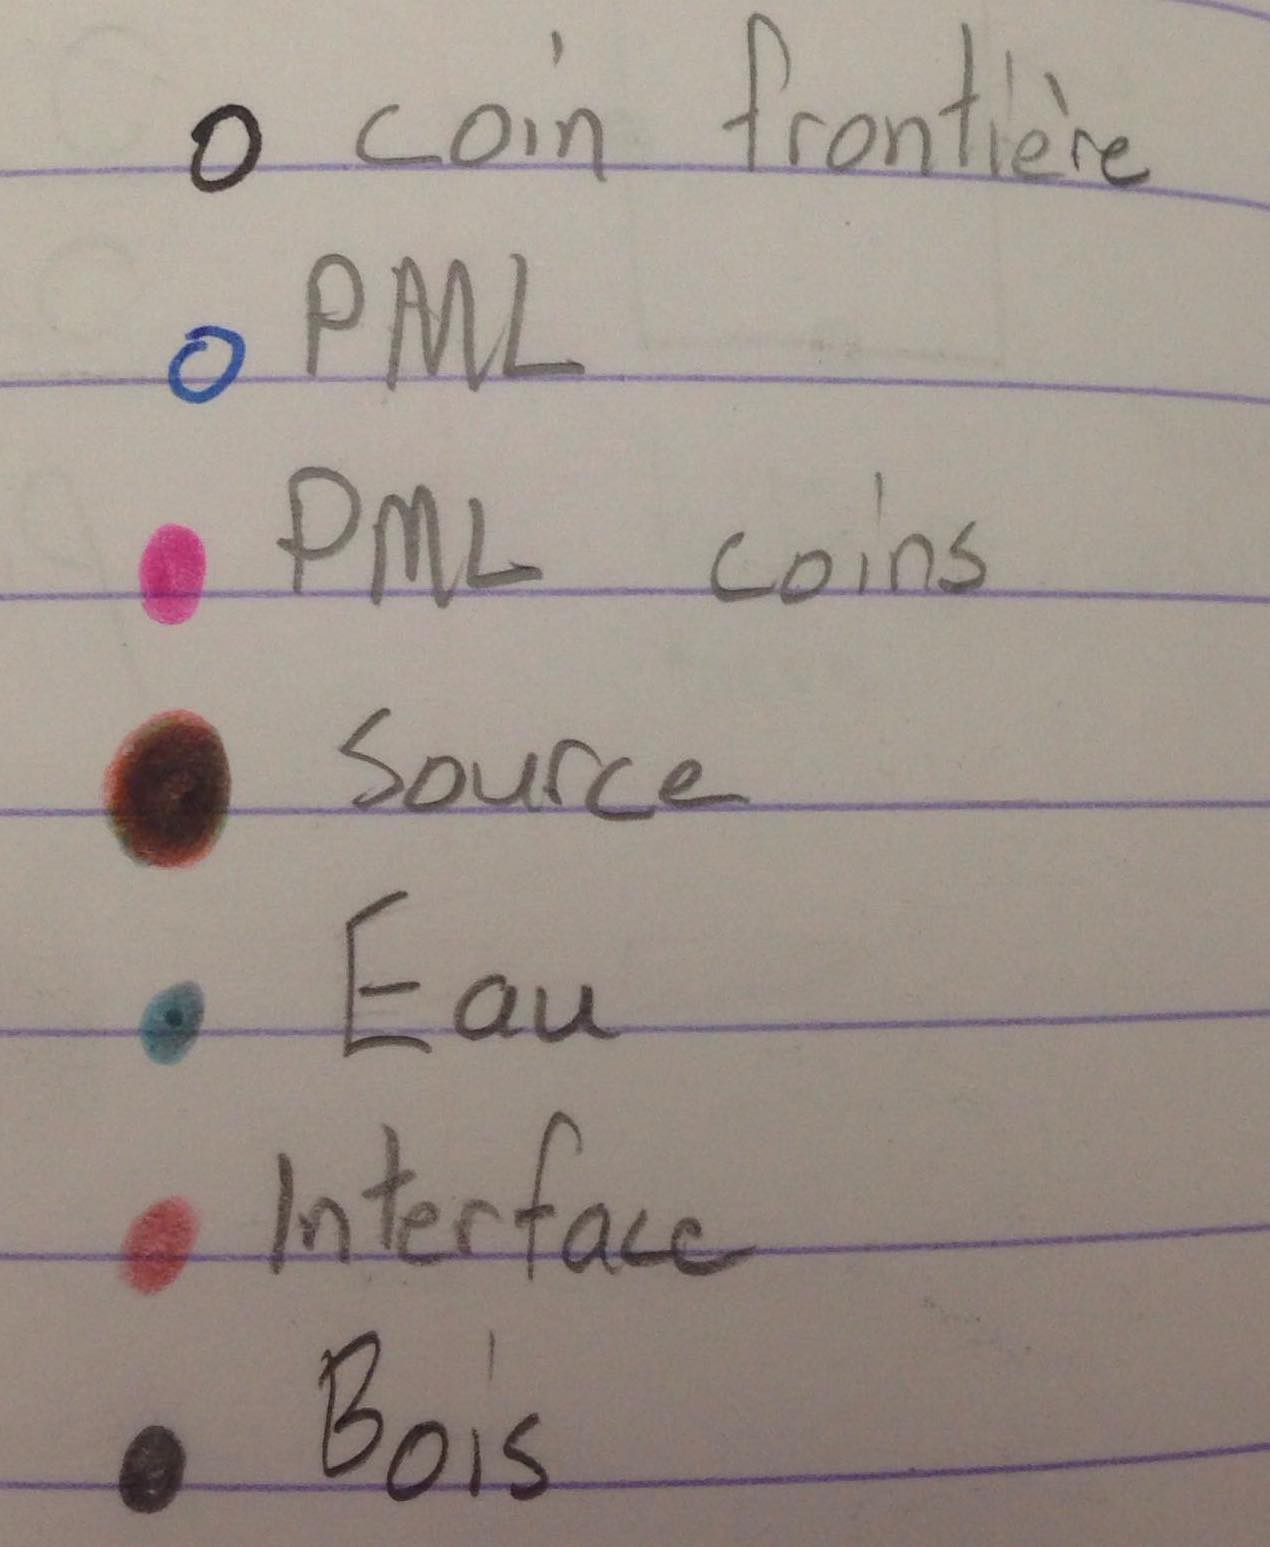 coin frontière
PML
PML coins
Source
Eau
Interface
Bois